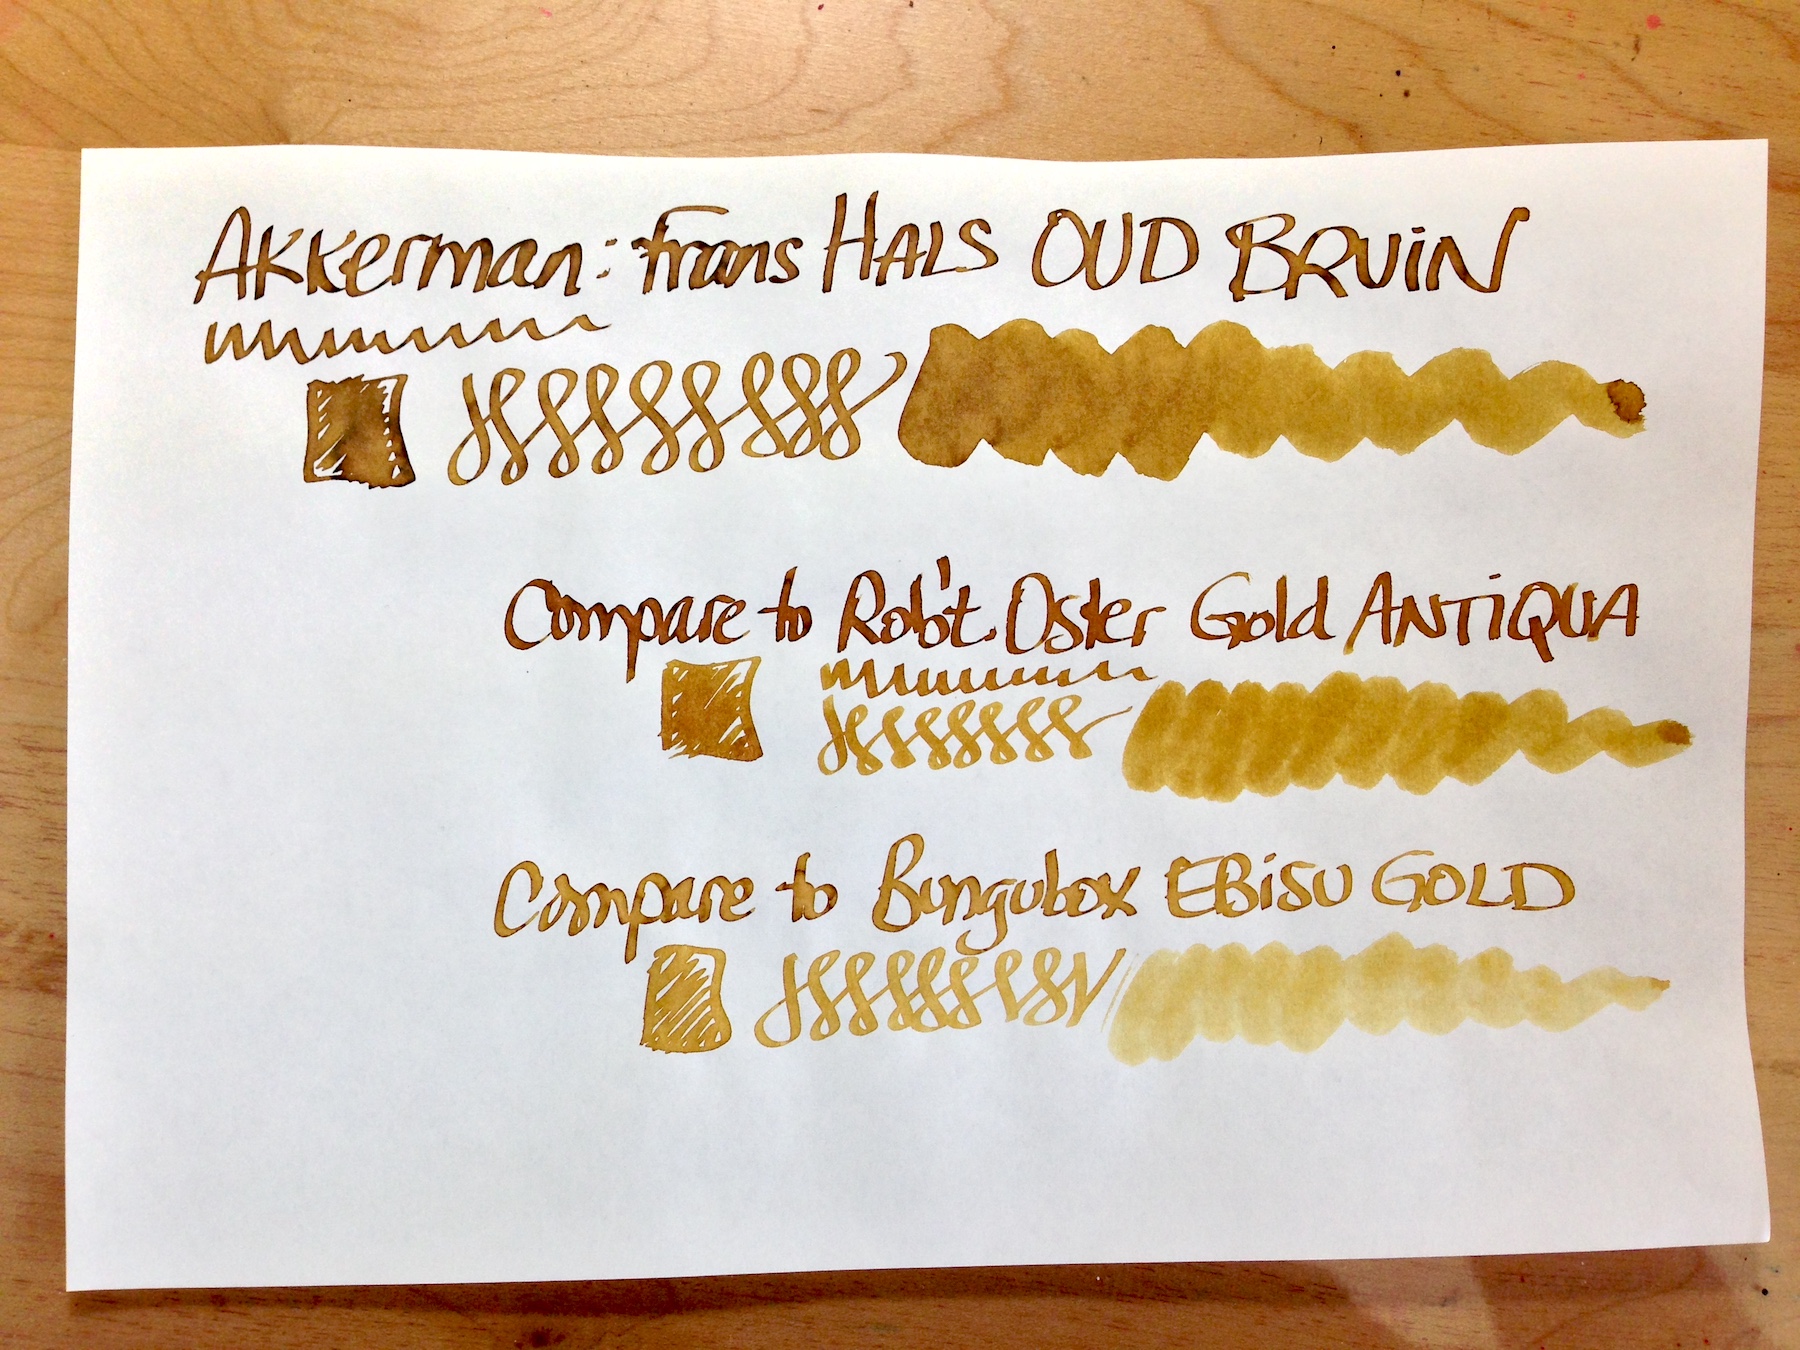 Akkerman: Frans HALS OUD BRUiN
Compare to Rob't. Oster Gold ANTiQUA
Compare to Bungubox EBiSU GOLD